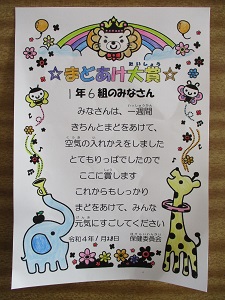 ☆まどあけ大賞☆
たいしょう
1年6組のみなさん
みなさんは、一週間
いっしゅうかん
きちんとまどをあけて、
空気の入れかえをしました
とてもりっぱでしたので
ここに賞します
これからもしっかり
まどをあけて、みんな
元気にすごしてください
令和4年1月28日 保健委員会